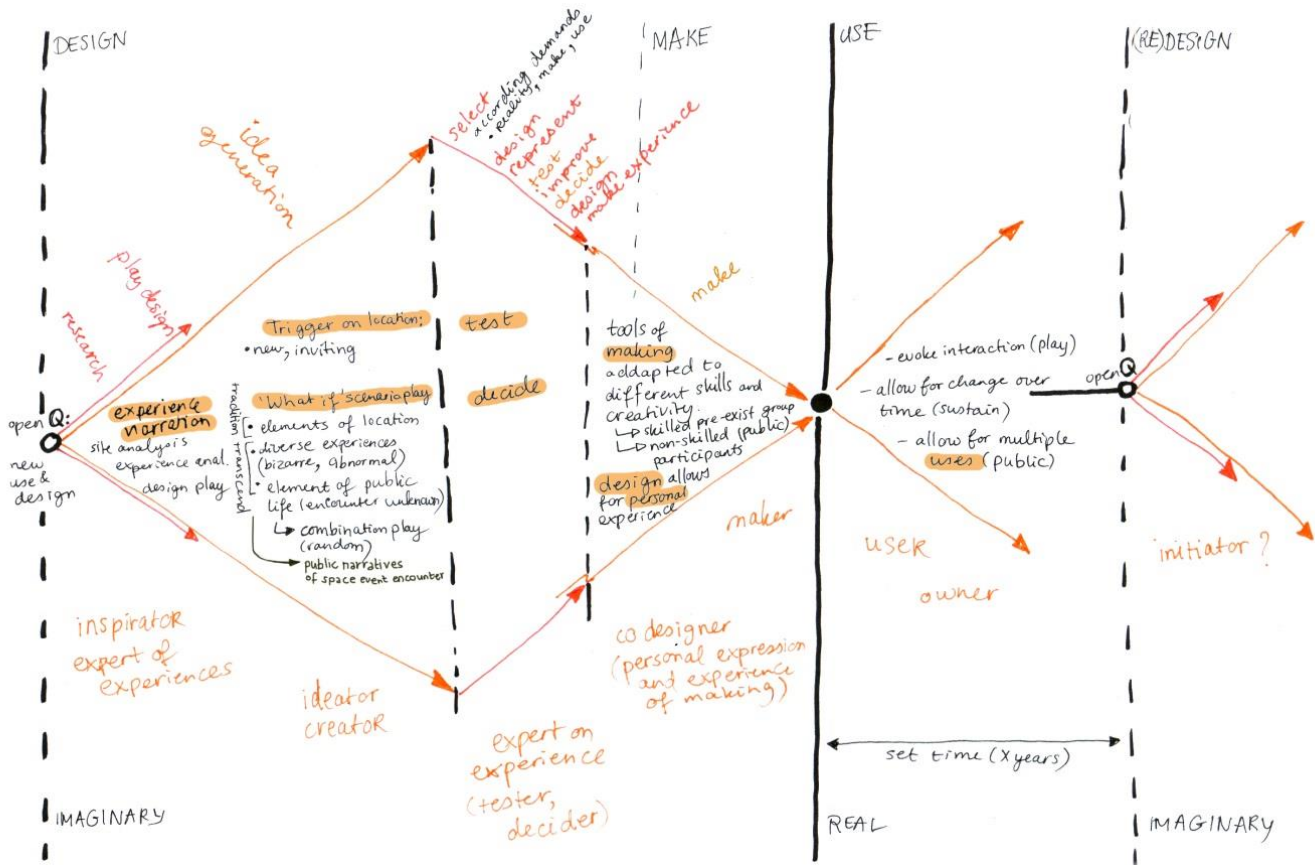 DESIGN
MAKE
USE
(RE)DESIGN
idea
generation
select
according demands
• reality, make, use
design
represent
test
improve
decide
design
make experience
research
play design
make
Trigger on location:
• new, inviting
test
decide
open Q:
new
use &
design
experience
narration
site analysis
experience enal.
design play
tradition transcend
'What if' scenarioplay
• elements of location
• diverse experiences
(bizarre, abnormal)
• element of public
life (encounter unknown)
↳ combination play
(random)
→ public narratives
of space event encounter
tools of
making
addapted to
different skills and
creativity:
↳ skilled pre-exist group
↳ non-skilled (public)
participants
design allows
for personal
experience
- evoke interaction (play)
- allow for change over
time (sustain)
- allow for multiple
uses (public)
open Q
inspirator
expert of
experiences
ideator
creator
expert on
experience
(tester,
decider)
co designer
(personal expression
and experience
of making)
maker
user
owner
initiator ?
set time (X years)
IMAGINARY
REAL
IMAGINARY